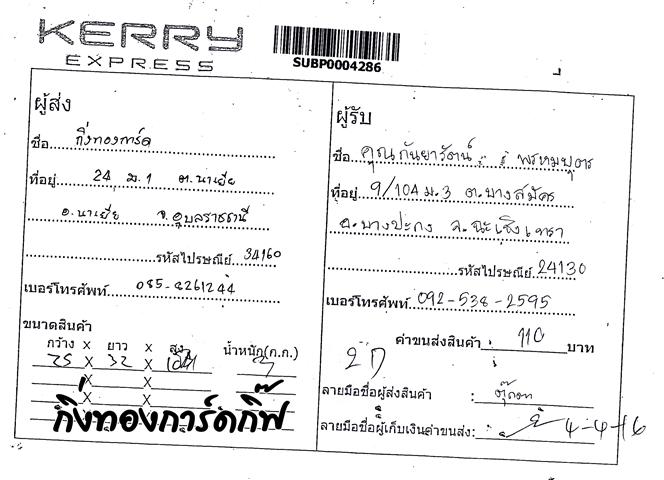 KERRY
EXPRESS
SUBP0004286
ผู้ส่ง
ชื่อ กิ่งทองการ์ด
ที่อยู่ 24 ม.1 ต.นาเยีย
อ.นาเยีย จ.อุบลราชธานี
รหัสไปรษณีย์ 34160
เบอร์โทรศัพท์ 085-8261244
ขนาดสินค้า
กว้าง X ยาว X สูง น้ำหนัก(ก.ก.)
X 32 X
X X
X X
กิ่งทองการ์ดกิ๊ฟ
ผู้รับ
ชื่อ คุณกันยารัตน์ พรหมบุตร
ที่อยู่ 9/104 ม.3 ต.บางสมัคร
อ.บางปะกง จ.ฉะเชิงเทรา
รหัสไปรษณีย์ 24130
เบอร์โทรศัพท์ 092-538-2595
ค่าขนส่งสินค้า 110 บาท
ลายมือชื่อผู้ส่งสินค้า :
ลายมือชื่อผู้เก็บเงินค่าขนส่ง: 4-4-16